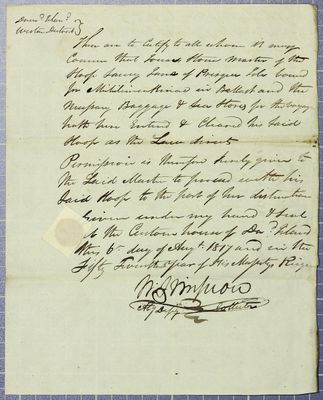 Domin.ᵃ Island
Western District
These are to Certify to all whom it may
Concern that Jonas Stone Master of the
Sloop Saucy Jane of Presque Isle bound
for in Ballast and the
necessary Baggage & Sea Stores for the voyage
hath here Entered & Cleared his Said
Sloop as the Law directs
Permission is therefore hereby given to
the Said Master to proceed with his
Said Sloop to the port of her destination
Given under my hand & Seal
at the Custom house of Island
this 6ᵗʰ day of Augᵗ 1817 and in the
Fifty Seventh year of His Majestys Reign
Collector